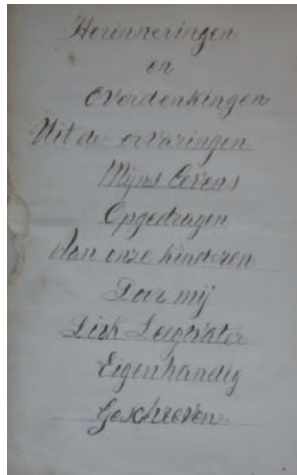 Herinneringen
en
Overdenkingen
Uit de ervaringen
Mijns levens
Opgedragen
Aan onze kinderen
Door mij
Dirk Leegwater
Eigenhandig
Geschreven